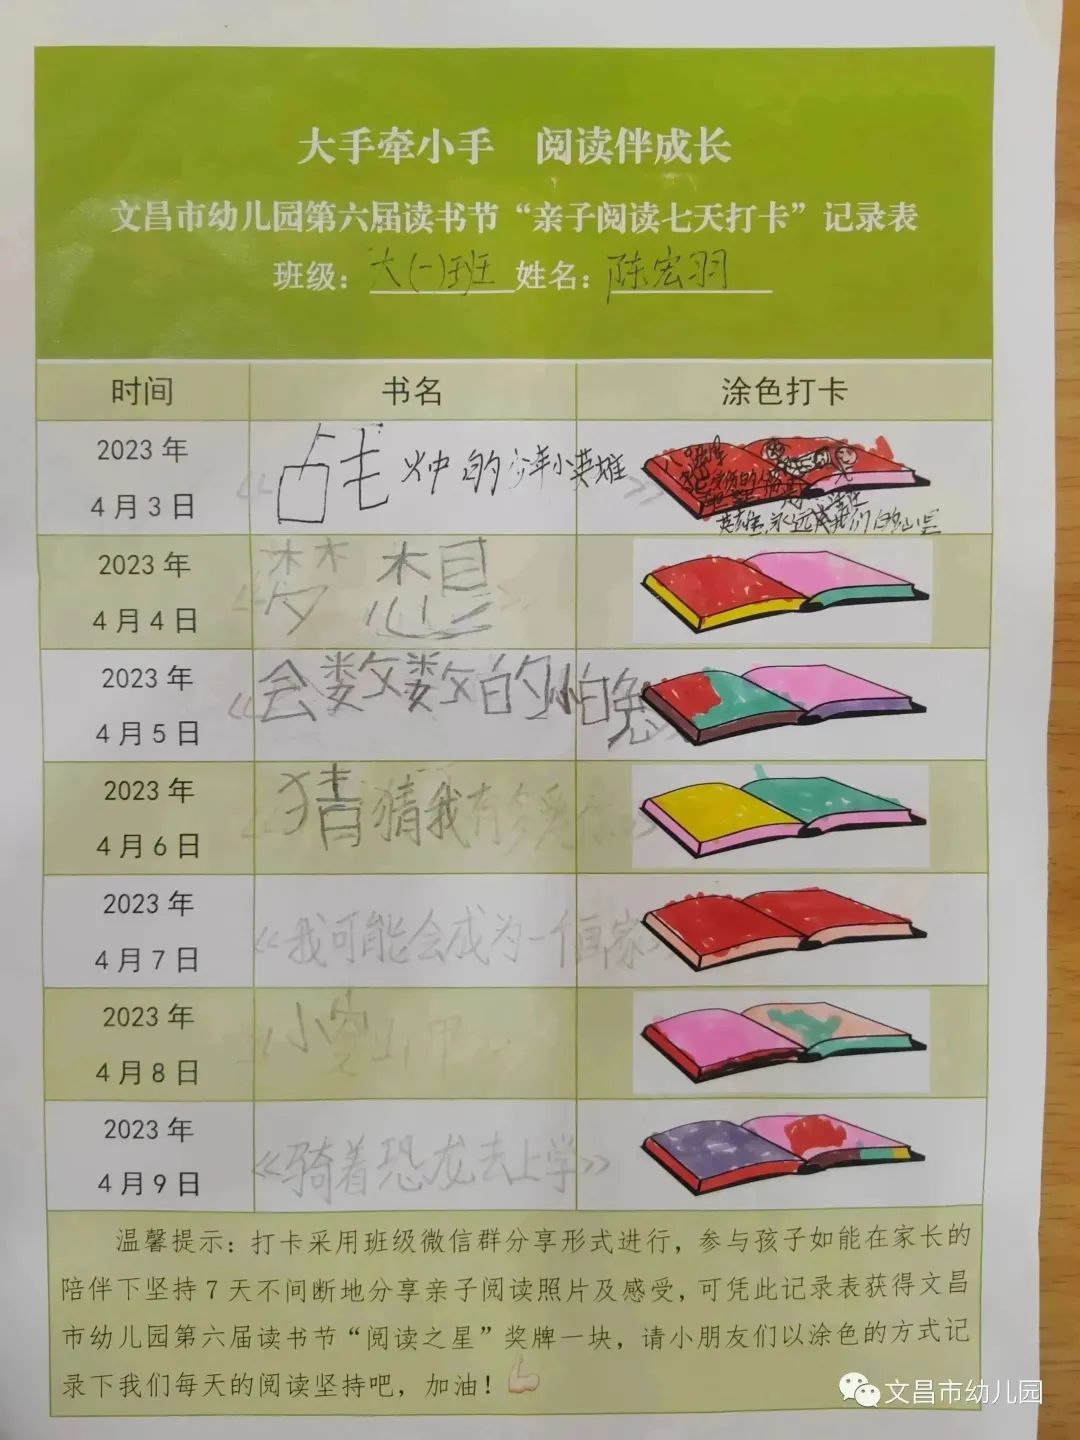 大手牵小手 阅读伴成长
文昌市幼儿园第六届读书节“亲子阅读七天打卡”记录表
班级：大(一)班 姓名：陈宏羽
时间 书名 涂色打卡
2023 年
4 月 3 日
火中的少年小英雄
英雄 永远 我们的
2023 年
4 月 4 日
《梦想》
2023 年
4 月 5 日
《会数数的小白兔
2023 年
4 月 6 日
《猜猜我有多爱你》
2023 年
4 月 7 日
《我可能会成为一个画家》
2023 年
4 月 8 日
小
2023 年
4 月 9 日
《骑着恐龙去上学》
温馨提示：打卡采用班级微信群分享形式进行，参与孩子如能在家长的
陪伴下坚持 7 天不间断地分享亲子阅读照片及感受，可凭此记录表获得文昌
市幼儿园第六届读书节“阅读之星”奖牌一块，请小朋友们以涂色的方式记
录下我们每天的阅读坚持吧，加油！
文昌市幼儿园